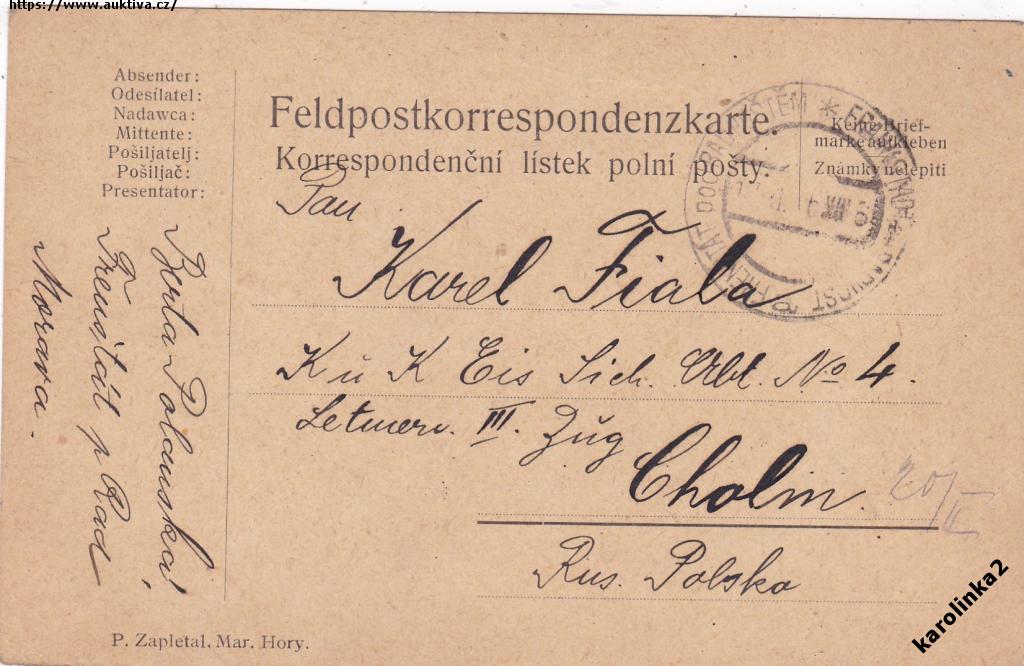 https://www.auktiva.cz/
Absender:
Odesílatel:
Nadawca:
Mittente:
Pošiljatelj:
Pošiljač:
Presentator:
Feldpostkorrespondenzkarte.
Korrespondenční lístek polní pošty.
Keine Brief-
marke aufkleben
Známky nelepiti
Pan
Karel Fiala
K u K Eis Sich. Abt. No 4.
III. Zug
Cholm.
Rus. Polsko
20/II
Berta Polanská
Frenštát p Rad
Morava.
P. Zapletal, Mar. Hory.
karolinka2